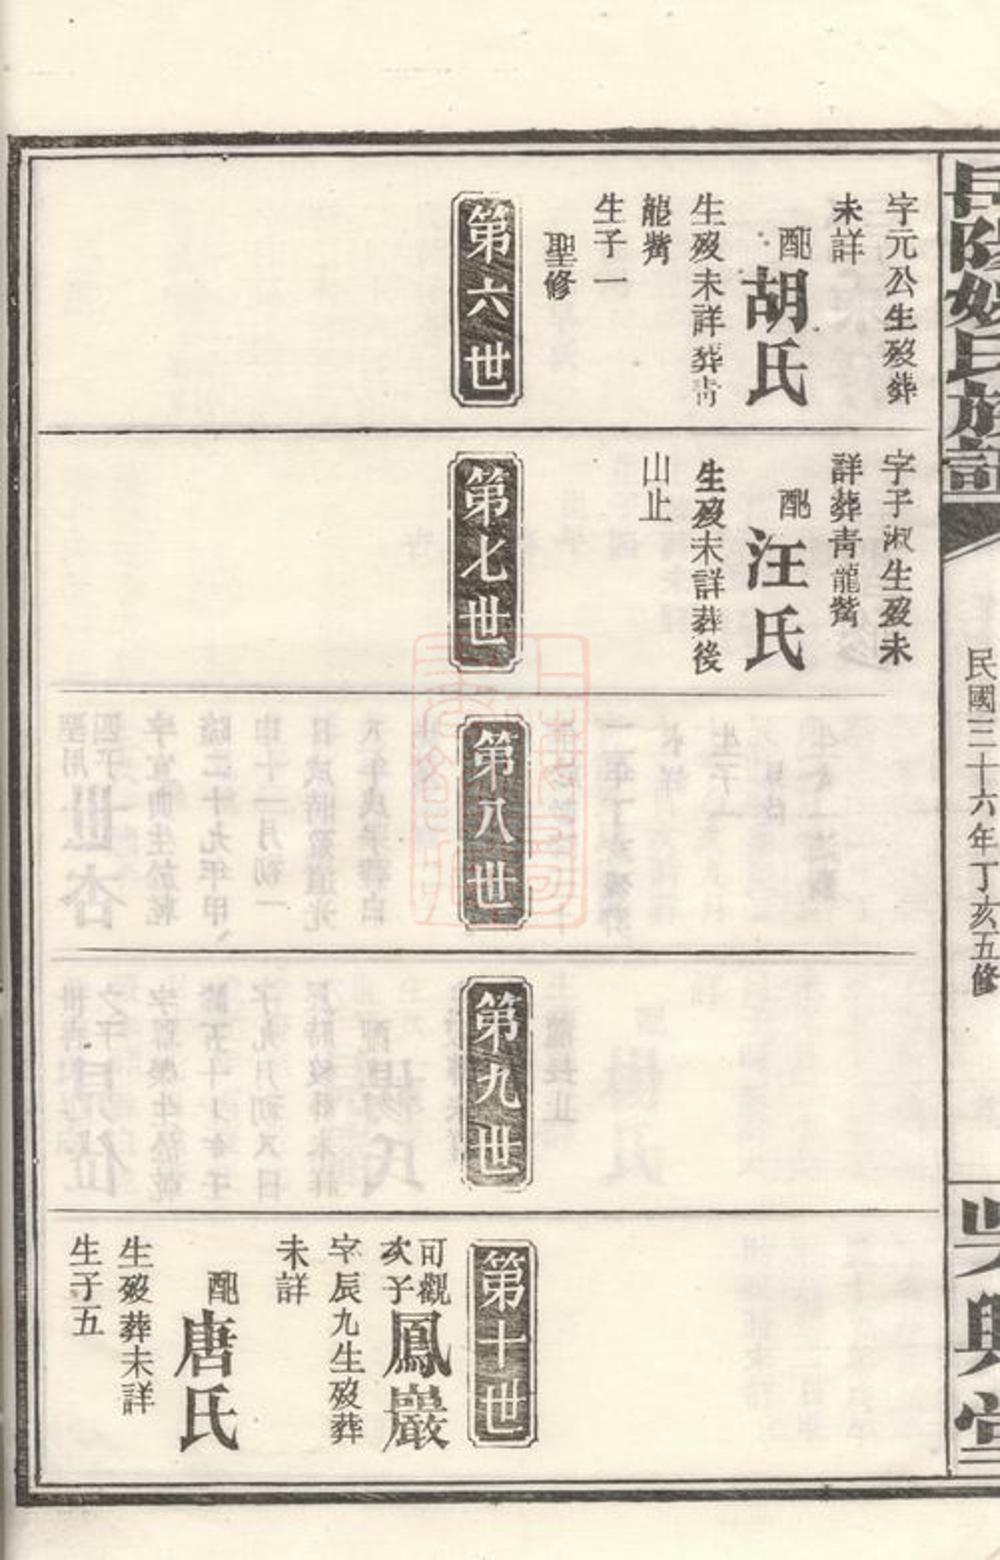 岳陽姚氏族譜
民國三十六年丁亥五修
吳興堂
字元公生歿葬
未詳
配胡氏
生歿未詳葬青
龍嘴
生子一
聖修
第六世
字子淑生歿未
詳葬青龍嘴
配汪氏
生歿未詳葬後
山止
第七世
第八世
第九世
第十世
可觀
次子
鳳巖
字辰九生歿葬
未詳
配唐氏
生歿葬未詳
生子五